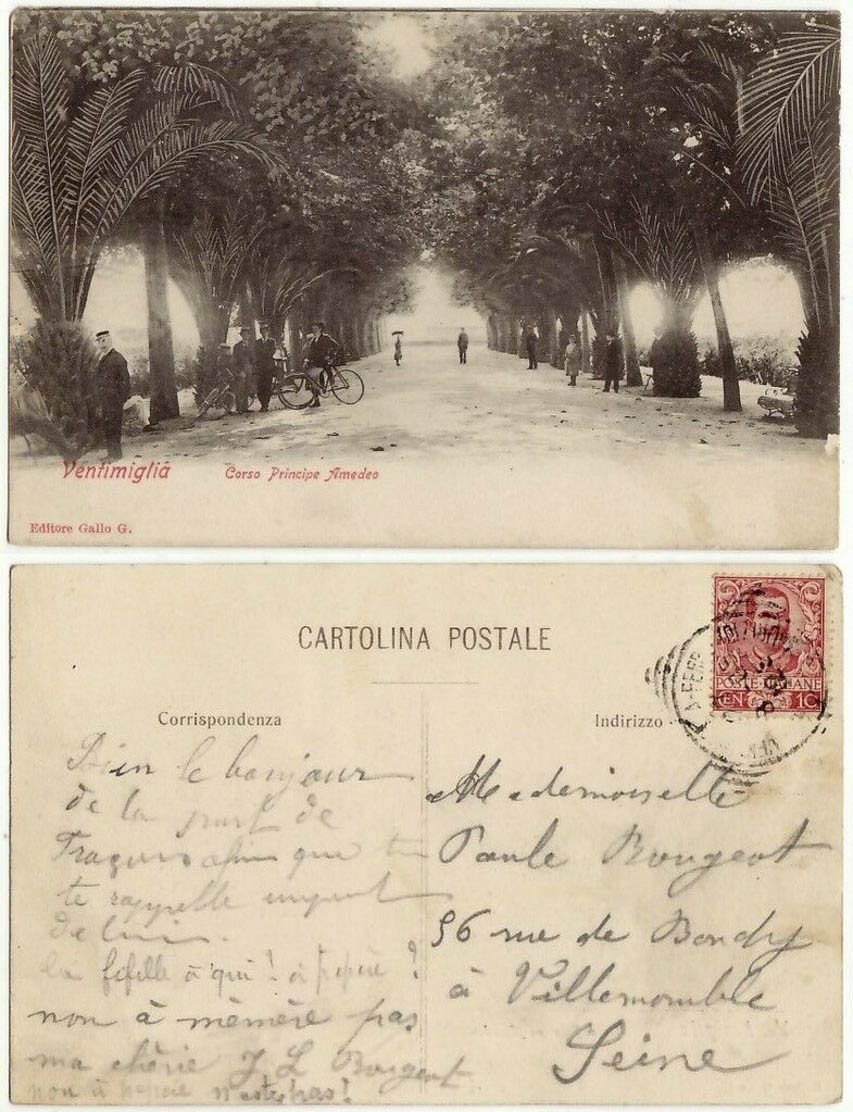 Ventimiglia Corso Principe Amedeo
Editore Gallo G.
CARTOLINA POSTALE
Corrispondenza
Indirizzo
POSTE ITALIANE
CEN 10
Bien le bonjour
de la part de
afin que tu
te rappelle un peut
de lui.
la fifille à qui! à pepère?
non à mèmère pas
ma chèrie J L Bougeot
non à pepère n'est pas!
Mademoiselle
Paule Bougeot
56 rue de Bondy
à Villemomble
Seine